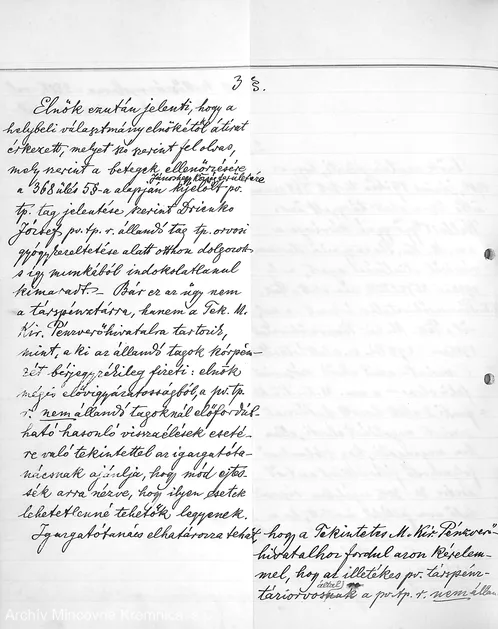 3 §.
Elnök ezután jelenti, hogy a
helybeli választmány elnökétől átirat
érkezett, melyet szó szerint felolvas,
mely szerint a betegek ellenőrzésére
a 368 ülés 5 §-a alapján kijelölt pv.
tp. tag jelentése szerint Drienko
József pv. tp. r. állandó tag tp. orvosi
gyógykezeltetése alatt otthon dolgozott
s így munkából indokolatlanul
kimaradt. – Bár ez az ügy nem
a társpénztárra, hanem a Tek. M.
Kir. Pénzverőhivatalra tartozik,
mint, a ki az állandó tagok kórpén-
zét bérjegyzékileg fizeti: elnök
mégis elővigyázatosságból, a pv. tp.
r. nem állandó tagoknál előfordul-
ható hasonló visszaélések eseté-
re való tekintettel az igazgatóta-
nácsnak ajánlja, hogy mód ejtes-
sék arra nézve, hogy ilyen esetek
lehetetlenné tehetők legyenek.
Igazgatótanács elhatározza tehát, hogy a Tekintetes M. Kir. Pénzverő-
hivatalhoz fordul azon kérelem-
mel, hogy az illetékes pv. társpénz-
által
táriorvosnak a pv. tp. r. nem állan
Archív Mincovne Kremnica